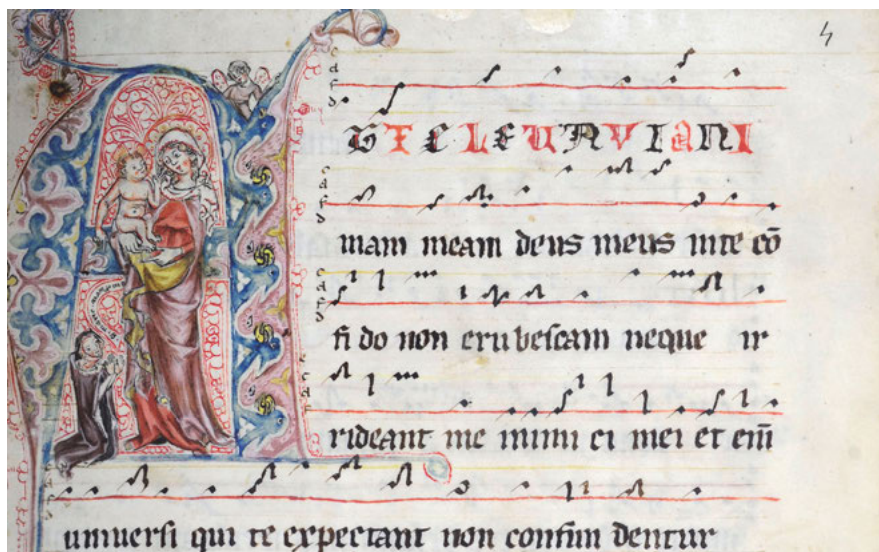 4
A D T E L E U A V I A N I
mam meam deus meus in te cō
fi do non erubescam neque ir
rideant me inimi ci mei et eni̅
universi qui te expectant non confun dentur